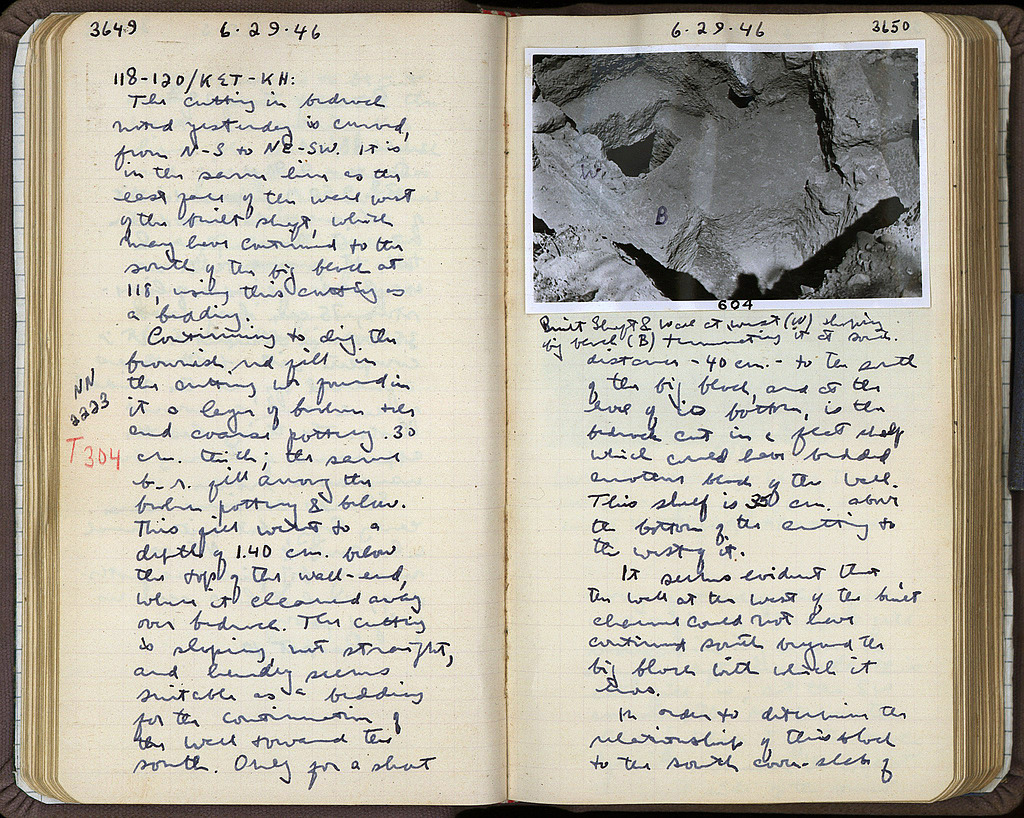 3649
6·29·46
118-120/KΣT-KH:
The cutting in bedrock
noted yesterday is curved,
from N-S to NE-SW. It is
in the same line as the
east face of the wall west
of the built shaft, which
may have continued to the
south of the big block at
118, using this cutting as
a bedding.
Continuing to dig the
brownish red fill in
the cutting we found in
it a layer of broken tiles
and coarse pottery .30
cm. thick; the same
b.-r. fill among the
broken pottery & below.
This fill went to a
depth of 1.40 cm. below
the top of the wall-end,
where it cleaned away
over bedrock. The cutting
is sloping, not straight,
and hardly seems
suitable as a bedding
for the continuation of
the wall toward the
south. Only for a short
NN
2223
T304
6·29·46
3650
W
B
604
Built Shaft & Wall at west (W) sloping
big block (B) terminating it at south.
distance - 40 cm. - to the south
of the big block, and at the
level of its bottom, is the
bedrock cut in a flat shelf
which could have bedded
another block of the wall.
This shelf is 30 cm. above
the bottom of the cutting to
the west of it.
It seems evident that
the wall at the west of the built
channel could not have
continued south beyond the
big block with which it
ends.
In order to determine the
relationship of this block
to the south cover-slab of